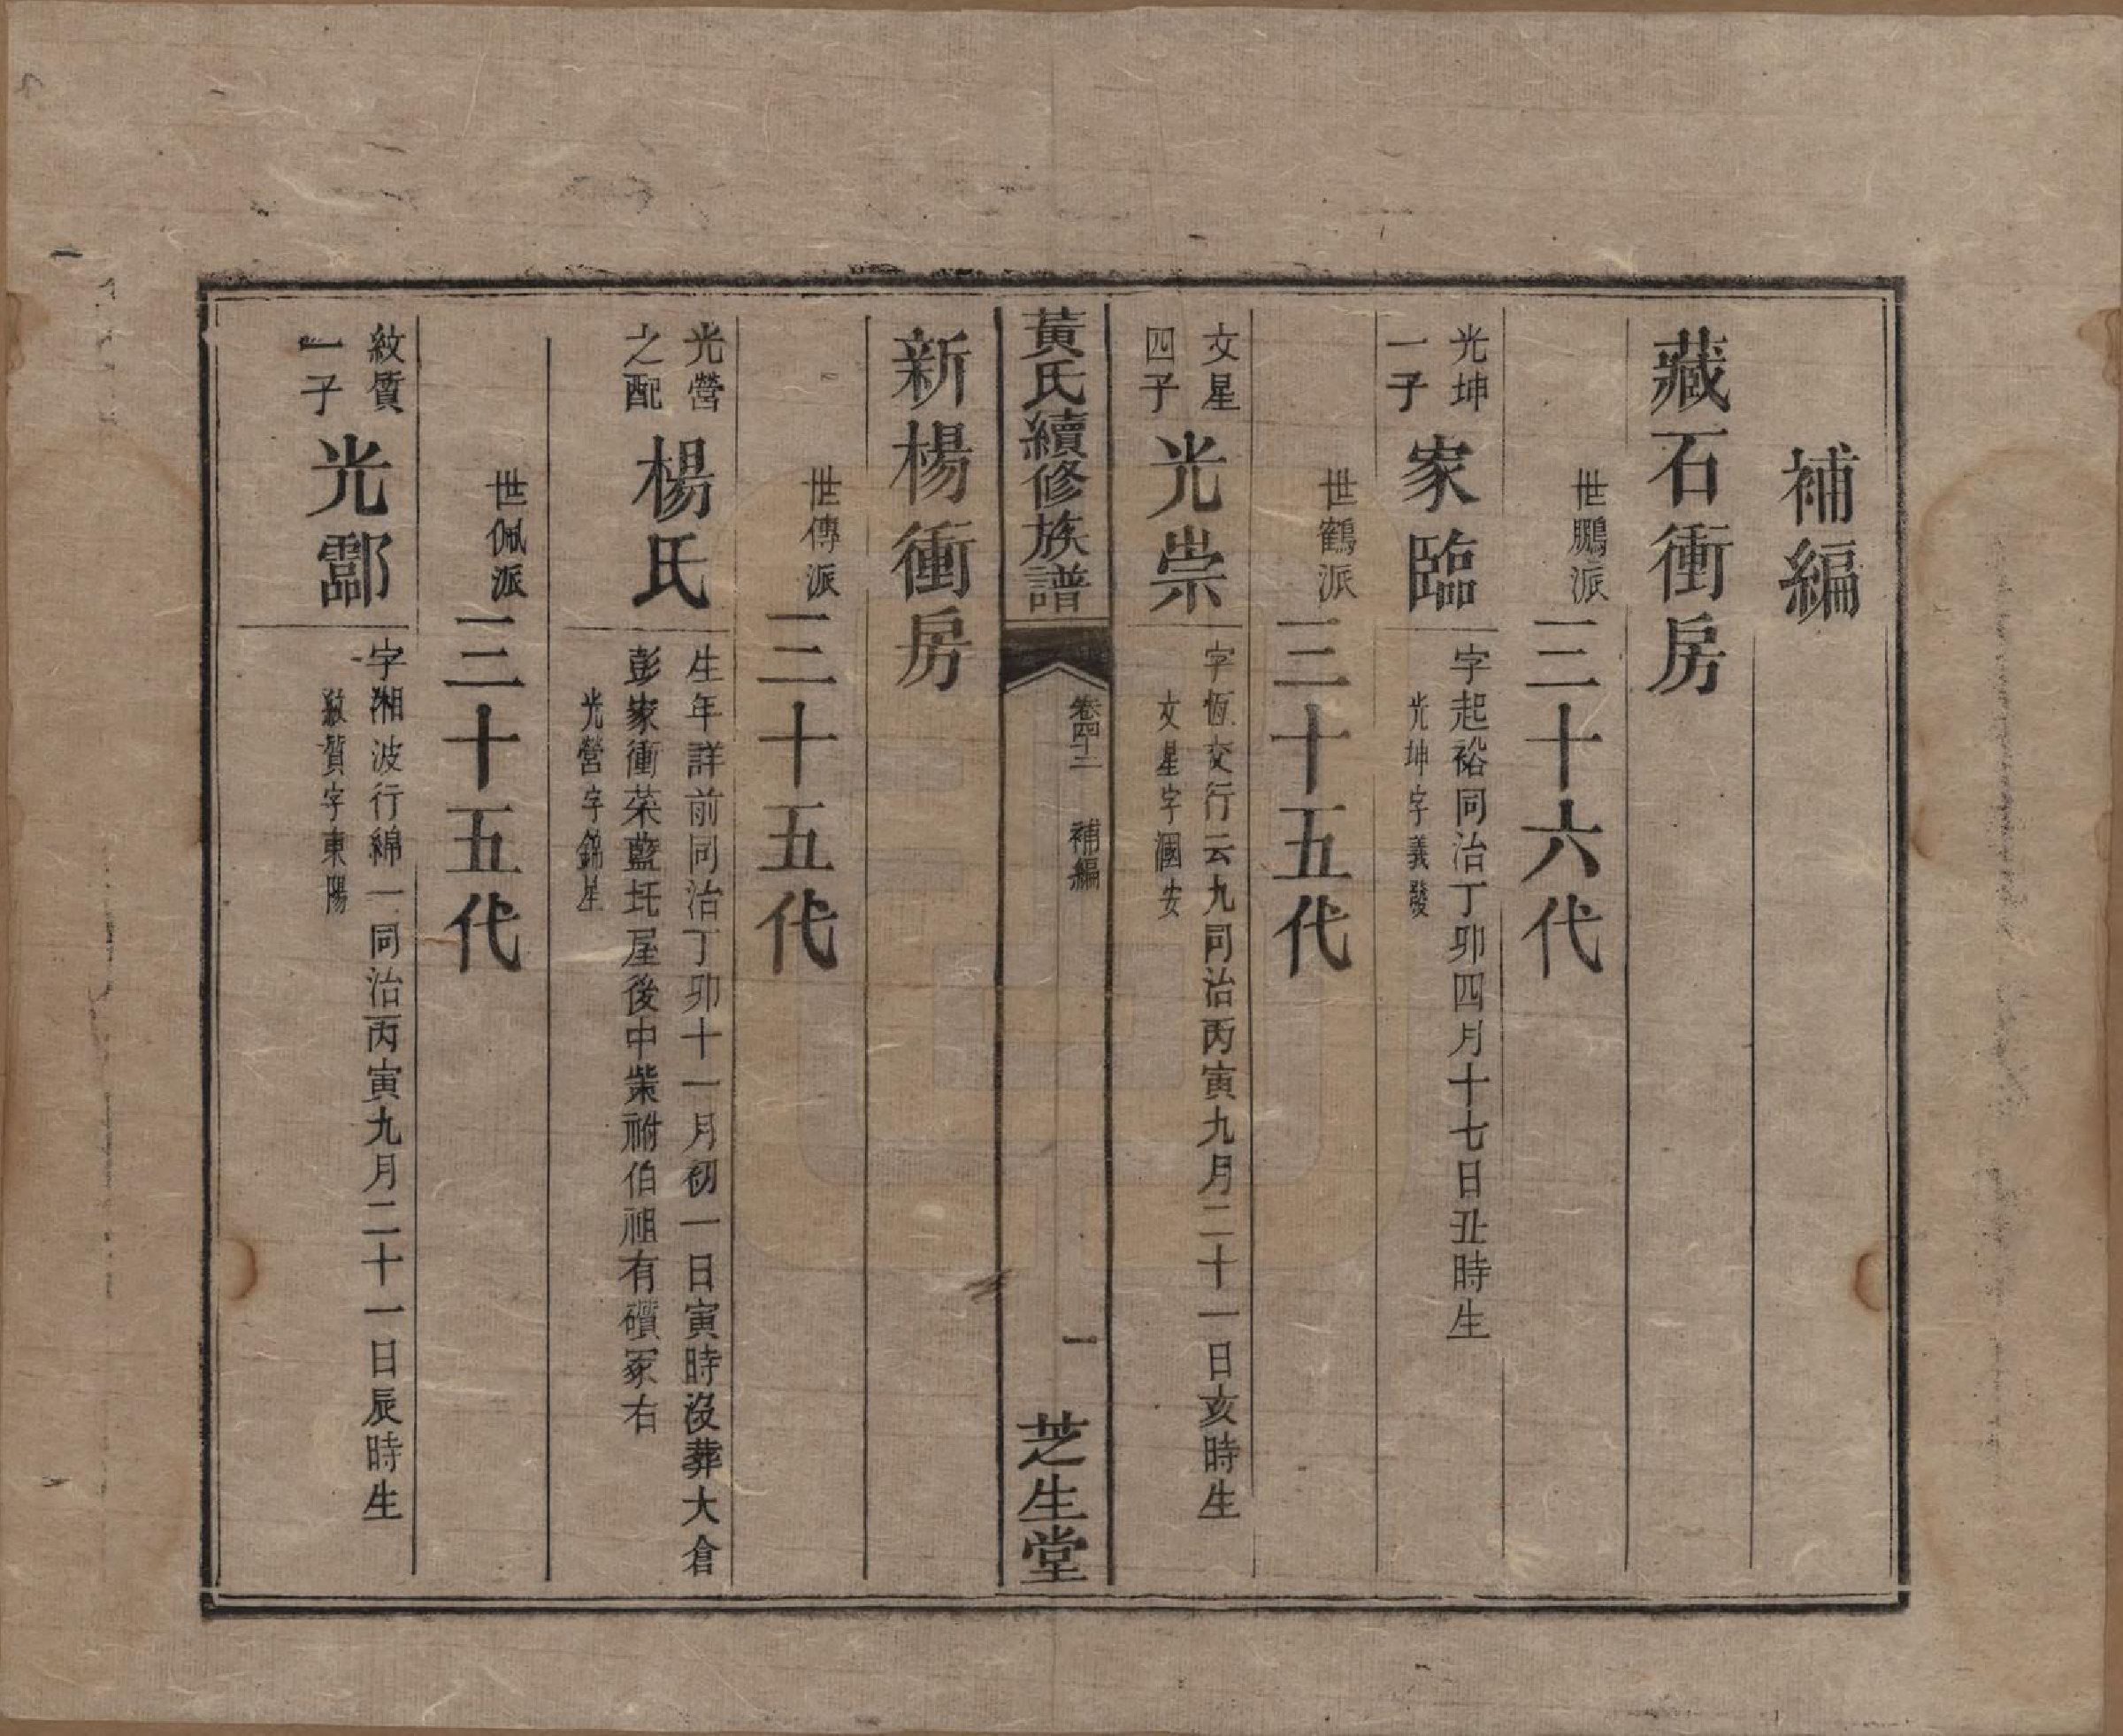 補編
藏石衝房
世鵬派
三十六代
光坤
一子
家臨
字起裕同治丁卯四月十七日丑時生
光坤字義發
世鶴派
三十五代
文星
四子
光崇
字恆交行云九同治丙寅九月二十一日亥時生
文星字國安
黃氏續修族譜
卷四十二
補編
一
芝生堂
新楊衝房
世傳派
三十五代
光營
之配
楊氏
生年詳前同治丁卯十一月初一日寅時沒葬大倉
彭家衝菜藍坵屋後中業祔伯祖有礩冢右
光營字錦星
世佩派
三十五代
紋質
一子
光酃
字湘波行綿一同治丙寅九月二十一日辰時生
紋質字東陽